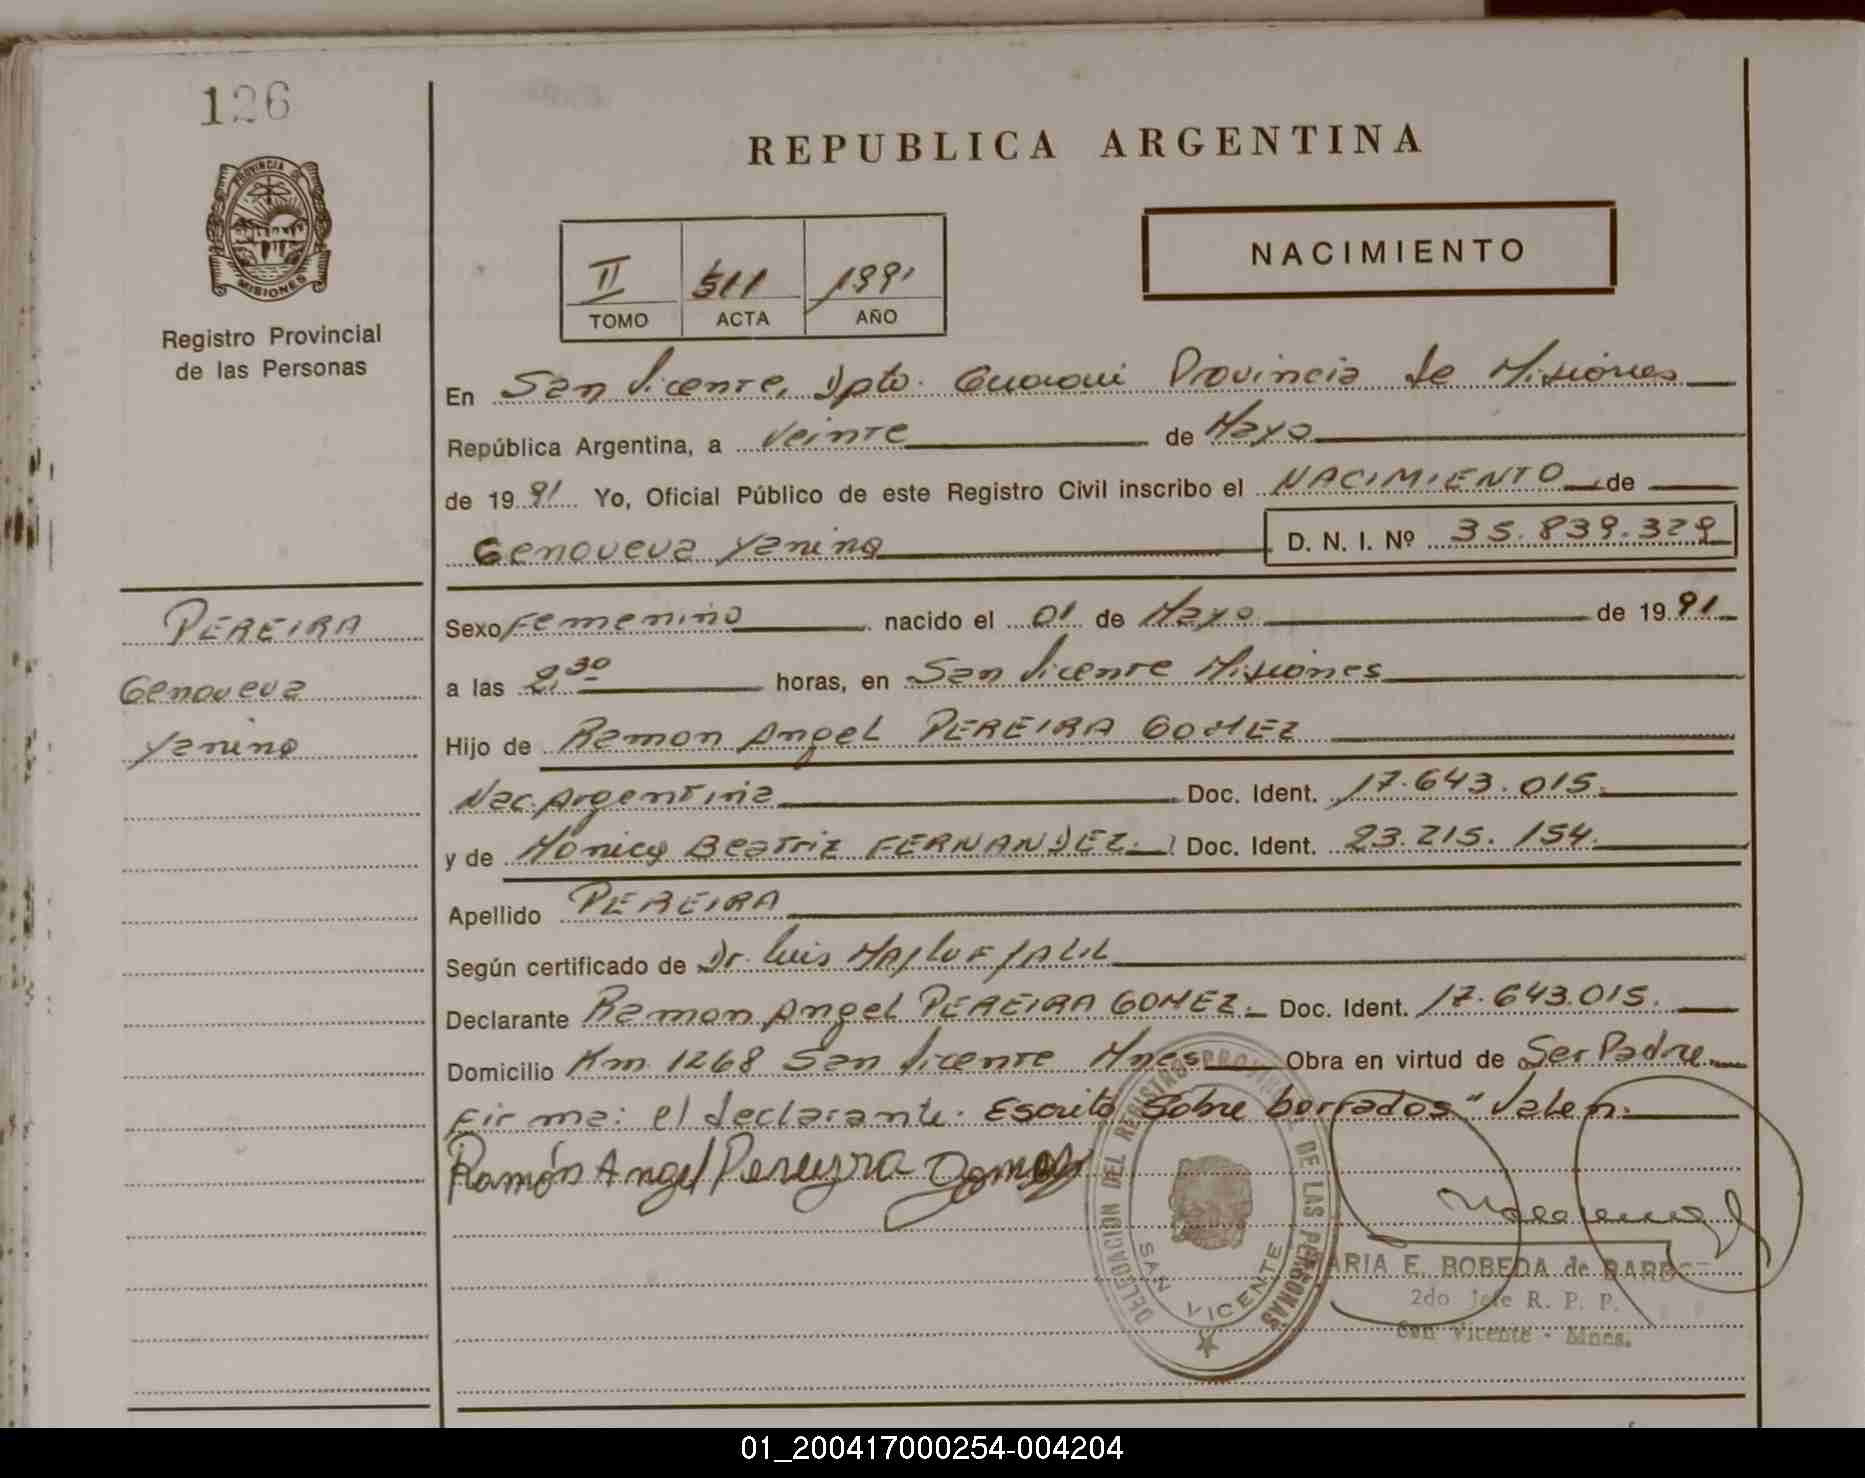 126
REPUBLICA ARGENTINA
PROVINCIA DE
MISIONES
Registro Provincial
de las Personas
II 511 1991
TOMO ACTA AÑO
NACIMIENTO
En San Vicente, Dpto. Guaraní Provincia de Misiones
República Argentina, a veinte de Mayo
de 1991 Yo, Oficial Público de este Registro Civil inscribo el NACIMIENTO de
Genoveva Yanina D. N. I. Nº 35.839.329
PEREIRA
Genoveva
Yanina
Sexo Femenino nacido el 01 de Mayo de 1991
a las 2,30 horas, en San Vicente Misiones
Hijo de Ramon Angel PEREIRA GOMEZ
Nac. Argentina Doc. Ident. 17.643.015.
y de Monica Beatriz FERNANDEZ. Doc. Ident. 23.215.154.
Apellido PEREIRA
Según certificado de Dr. Luis
Declarante Ramon Angel PEREIRA GOMEZ. Doc. Ident. 17.643.015.
Domicilio Km. 1268 San Vicente Mnes Obra en virtud de Ser Padre
Firma: el declarante. Escrito sobre borrados" Valen.
Ramón Angel Pereyra Gomez
DELEGACION DEL REGISTRO PROVINCIAL DE LAS PERSONAS
SAN VICENTE
ARIA E. BOBEDA de
2do Jefe R. P. P.
San Vicente - Mnes.
01_200417000254-004204